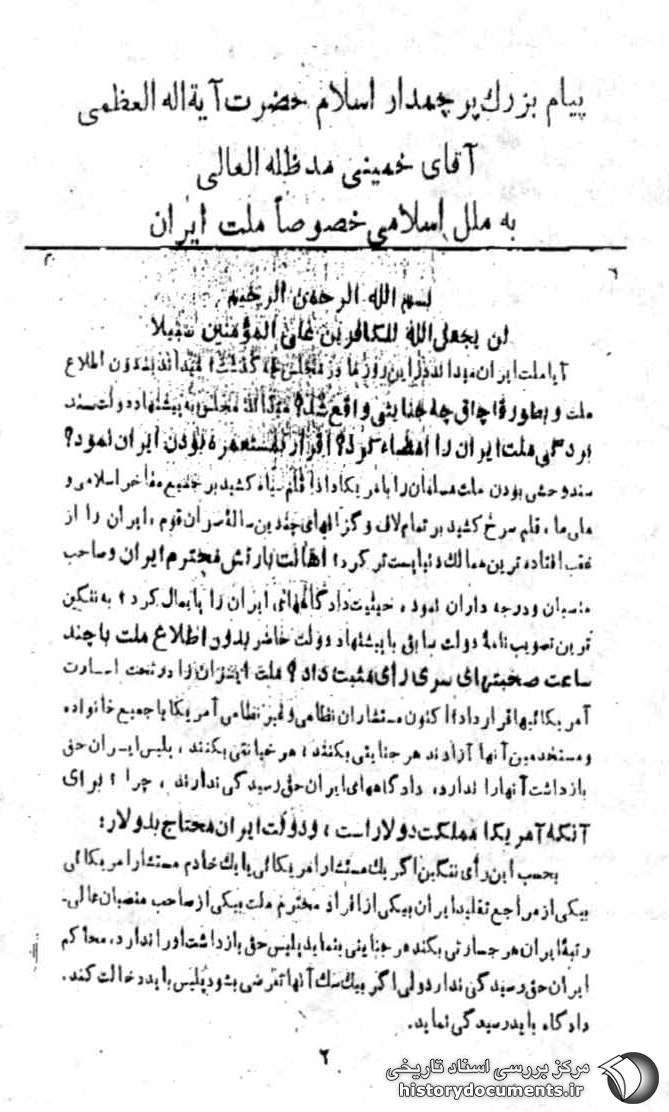 پیام بزرك پرچمدار اسلام حضرت آیة اله العظمی
آقای خمینی مدظله العالی
به ملل اسلامی خصوصاً ملت ایران
بسم الله الرحمن الرحیم
لن یجعل الله للکافرین علی المؤمنین سبیلا
آیا ملت ایران میداند در این روزها در مجلس چه گذشت؟ میداند بدون اطلاع
ملت و بطور قاچاق چه جنایتی واقع شد؟ میداند مجلس به پیشنهاد دولت سند
بردگی ملت ایران را امضاء کرد؟ اقرار بمستعمره بودن ایران نمود؟
سند وحشی بودن ملت مسلمان را بامریکا داد؟ قلم سیاه کشید بر جمیع مفاخر اسلامی و
ملی ما، قلم سرخ کشید بر تمام لاف و گزافهای چندین سالهٔ سران قوم، ایران را از
عقب افتاده ترین ممالك دنیا پست تر کرد؟ اهانت بارتش محترم ایران و صاحب
منصبان و درجه داران نمود، حیثیت دادگاههای ایران را پایمال کرد؟ به ننگین
ترین تصویب نامهٔ دولت سابق با پیشنهاد دولت حاضر بدون اطلاع ملت با چند
ساعت صحبتهای سری رأی مثبت داد؟ ملت ایران را در تحت اسارت
آمریکائیها قرار داد؟ اکنون مستشاران نظامی و غیر نظامی آمریکا با جمیع خانواده
و مستخدمین آنها آزادند هر جنایتی بکنند، هر خیانتی بکنند، پلیس ایران حق
بازداشت آنها را ندارد، دادگاههای ایران حق رسیدگی ندارند، چرا؟ برای
آنکه آمریکا مملکت دولار است، و دولت ایران محتاج بدولار؛
بحسب این رأی ننگین اگر یك مستشار امریکائی یا یك خادم مستشار امریکائی
بیکی از مراجع تقلید ایران بیکی از افراد محترم ملت بیکی از صاحب منصبان عالی-
رتبهٔ ایران هر جسارتی بکند هر جنایتی بنماید پلیس حق بازداشت او را ندارد، محاکم
ایران حق رسیدگی ندارد ولی اگر بیك سك آنها تعرضی بشود پلیس باید دخالت کند.
دادگاه باید رسیدگی نماید.
۲
مرکز بررسی اسناد تاریخی
historydocuments.ir